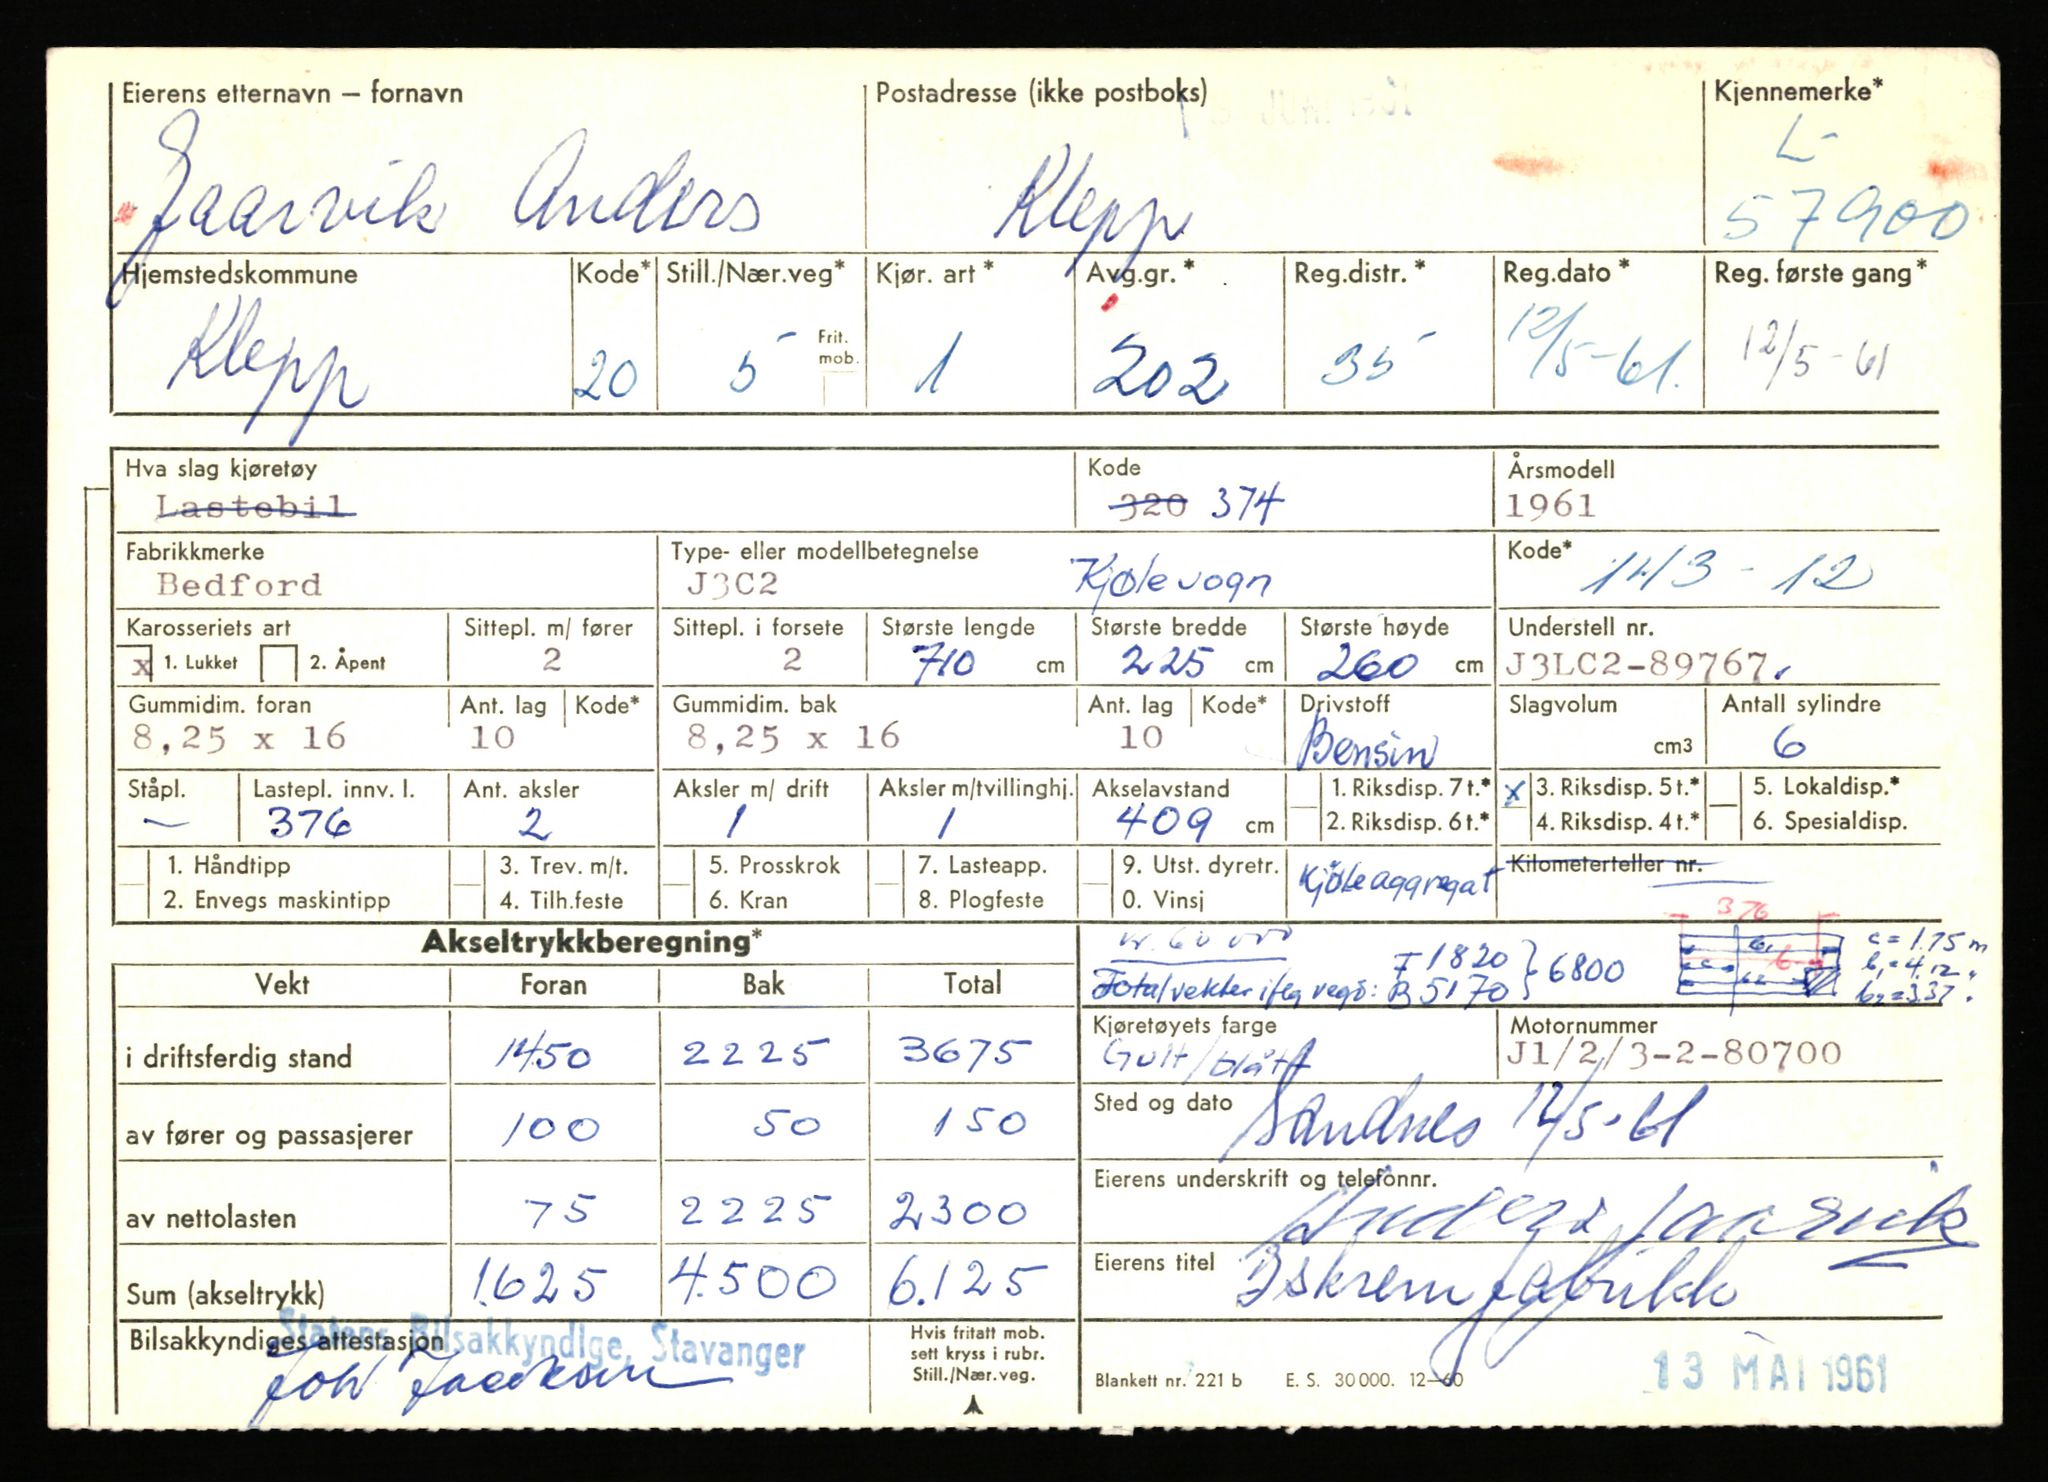 Eierens etternavn — fornavn Postadresse (ikke postboks) Kjennemerke*
Jaarvik Anders Klepp L-
57900
Hjemstedskommune Kode* Still./Nær.veg* Kjør. art* Avg.gr.* Reg.distr.* Reg.dato* Reg. første gang*
Klepp 20 5 Frit. mob. 1 202 35 12/5-61. 12/5-61
Hva slag kjøretøy Kode Årsmodell
Lastebil 320 374 1961
Fabrikkmerke Type- eller modellbetegnelse Kode*
Bedford J3C2 Kjølevogn 143-12
Karosseriets art Sittepl. m/ fører Sittepl. i forsete Største lengde Største bredde Største høyde Understell nr.
x 1. Lukket 2. Åpent 2 2 710 cm 225 cm 260 cm J3LC2-89767.
Gummidim. foran Ant. lag Kode* Gummidim. bak Ant. lag Kode* Drivstoff Slagvolum Antall sylindre
8,25 x 16 10 8,25 x 16 10 Bensin cm3 6
Ståpl. Lastepl. innv. l. Ant. aksler Aksler m/ drift Aksler m/tvillinghj. Akselavstand 1. Riksdisp. 7 t.* x 3. Riksdisp. 5 t.* 5. Lokaldisp.*
— 376 2 1 1 409 cm 2. Riksdisp. 6 t.* 4. Riksdisp. 4 t.* 6. Spesialdisp.
1. Håndtipp 3. Trev. m/t. 5. Prosskrok 7. Lasteapp. 9. Utst. dyretr. Kjøleaggregat Kilometerteller nr.
2. Envegs maskintipp 4. Tilh.feste 6. Kran 8. Plogfeste 0. Vinsj
376
Akseltrykkberegning*
F 1820 } 6800 c = 1.75 m
Totalvekter iflg vegs: B 5170 b1 = 4,12 "
b2 = 3.37 "
Vekt Foran Bak Total
Kjøretøyets farge Motornummer
i driftsferdig stand 1450 2225 3675 Gult/blått J1/2/3-2-80700
Sted og dato Sandnes 12/5-61
av fører og passasjerer 100 50 150
Eierens underskrift og telefonnr.
av nettolasten 75 2225 2300 Anders Jaarvik
Eierens titel Iskremfabrikk
Sum (akseltrykk) 1.625 4.500 6.125
Statens Bilsakkyndige, Stavanger
Bilsakkyndiges attestasjon Hvis fritatt mob.
sett kryss i rubr.
Still./Nær.veg.
Blankett nr. 221 b E. S. 30 000. 12—60 13 MAI 1961